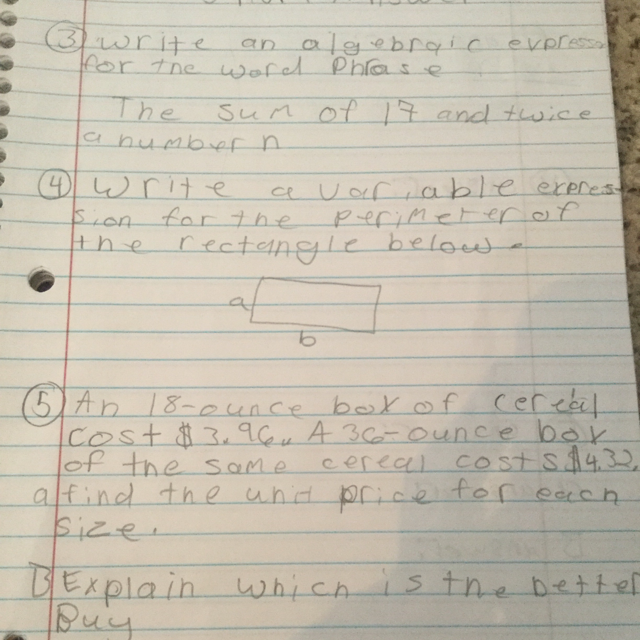 ③ Write an algebraic expres
for the word Phrase
The sum of 17 and twice
a number n
④ Write a variable expres-
sion for the perimeter of
the rectangle below.
a
b
⑤ An 18-ounce box of cereal
cost $3.96. A 36-ounce box
of the same cereal costs $4.32
a find the unit price for each
size.
B Explain which is the better
Buy